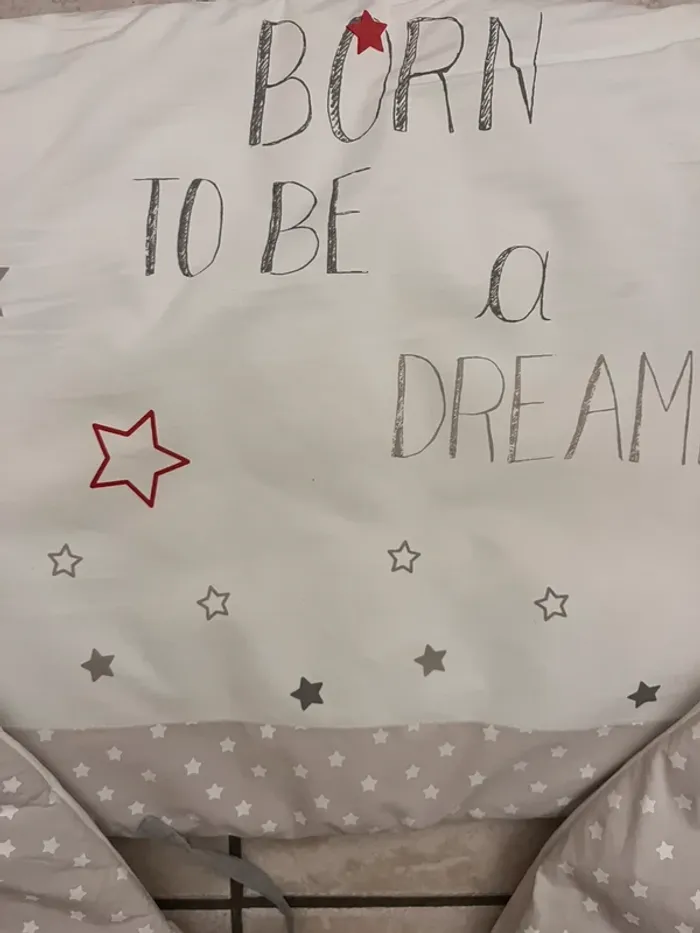 BORN
TO BE
a
DREAM